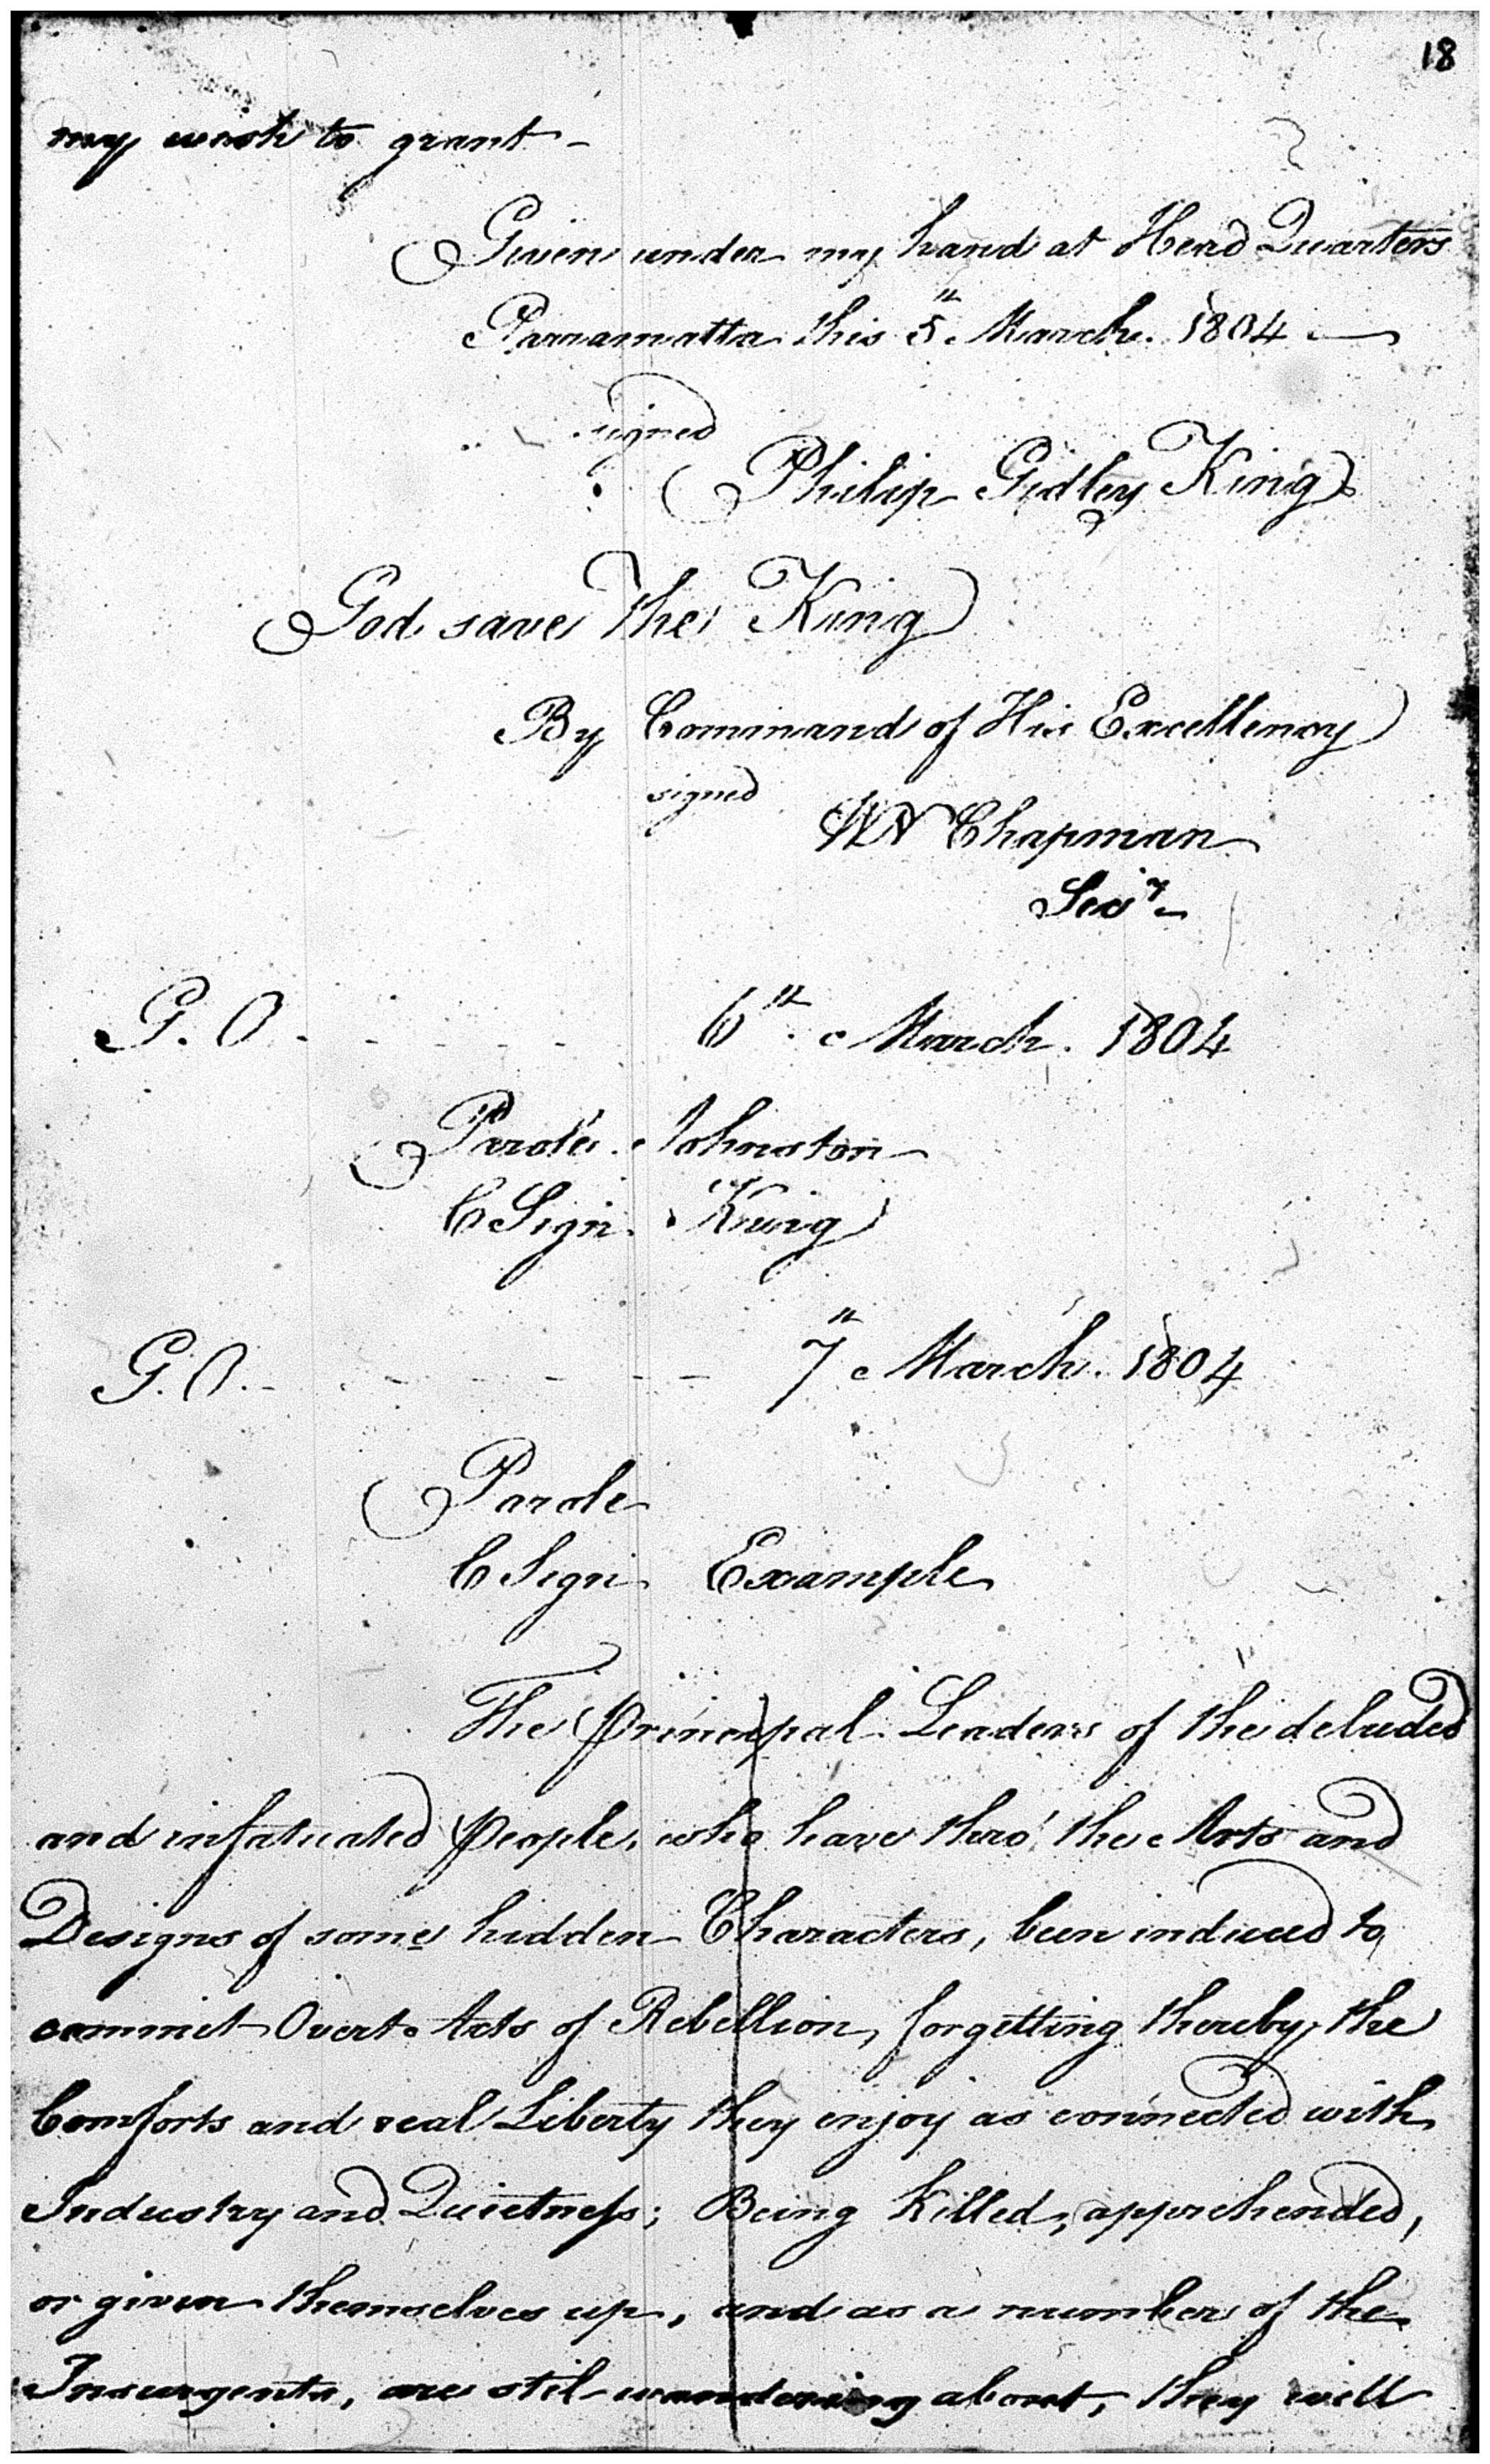 18
my wish to grant –
Given under my hand at Head Quarters
Parramatta this 5th March. 1804 —
signed
Philip Gidley King
God save The King
By Command of His Excellency
signed
WN Chapman
Secy
G. O. - - - - - 6th. March. 1804
Parole. Johnston
C Sign. King
G. O. - - - - - - - 7th March. 1804
Parole
C Sign Example
The principal Leaders of the deluded
and infatuated people, who have thro' the Arts and
Designs of some hidden Characters, been induced to
commit Overt Acts of Rebellion, forgetting thereby the
Comforts and real Liberty they enjoy as connected with
Industry and Quietness; Being Killed, apprehended,
or given themselves up, and as a number of the
Insurgents, are stil wandering about, they will